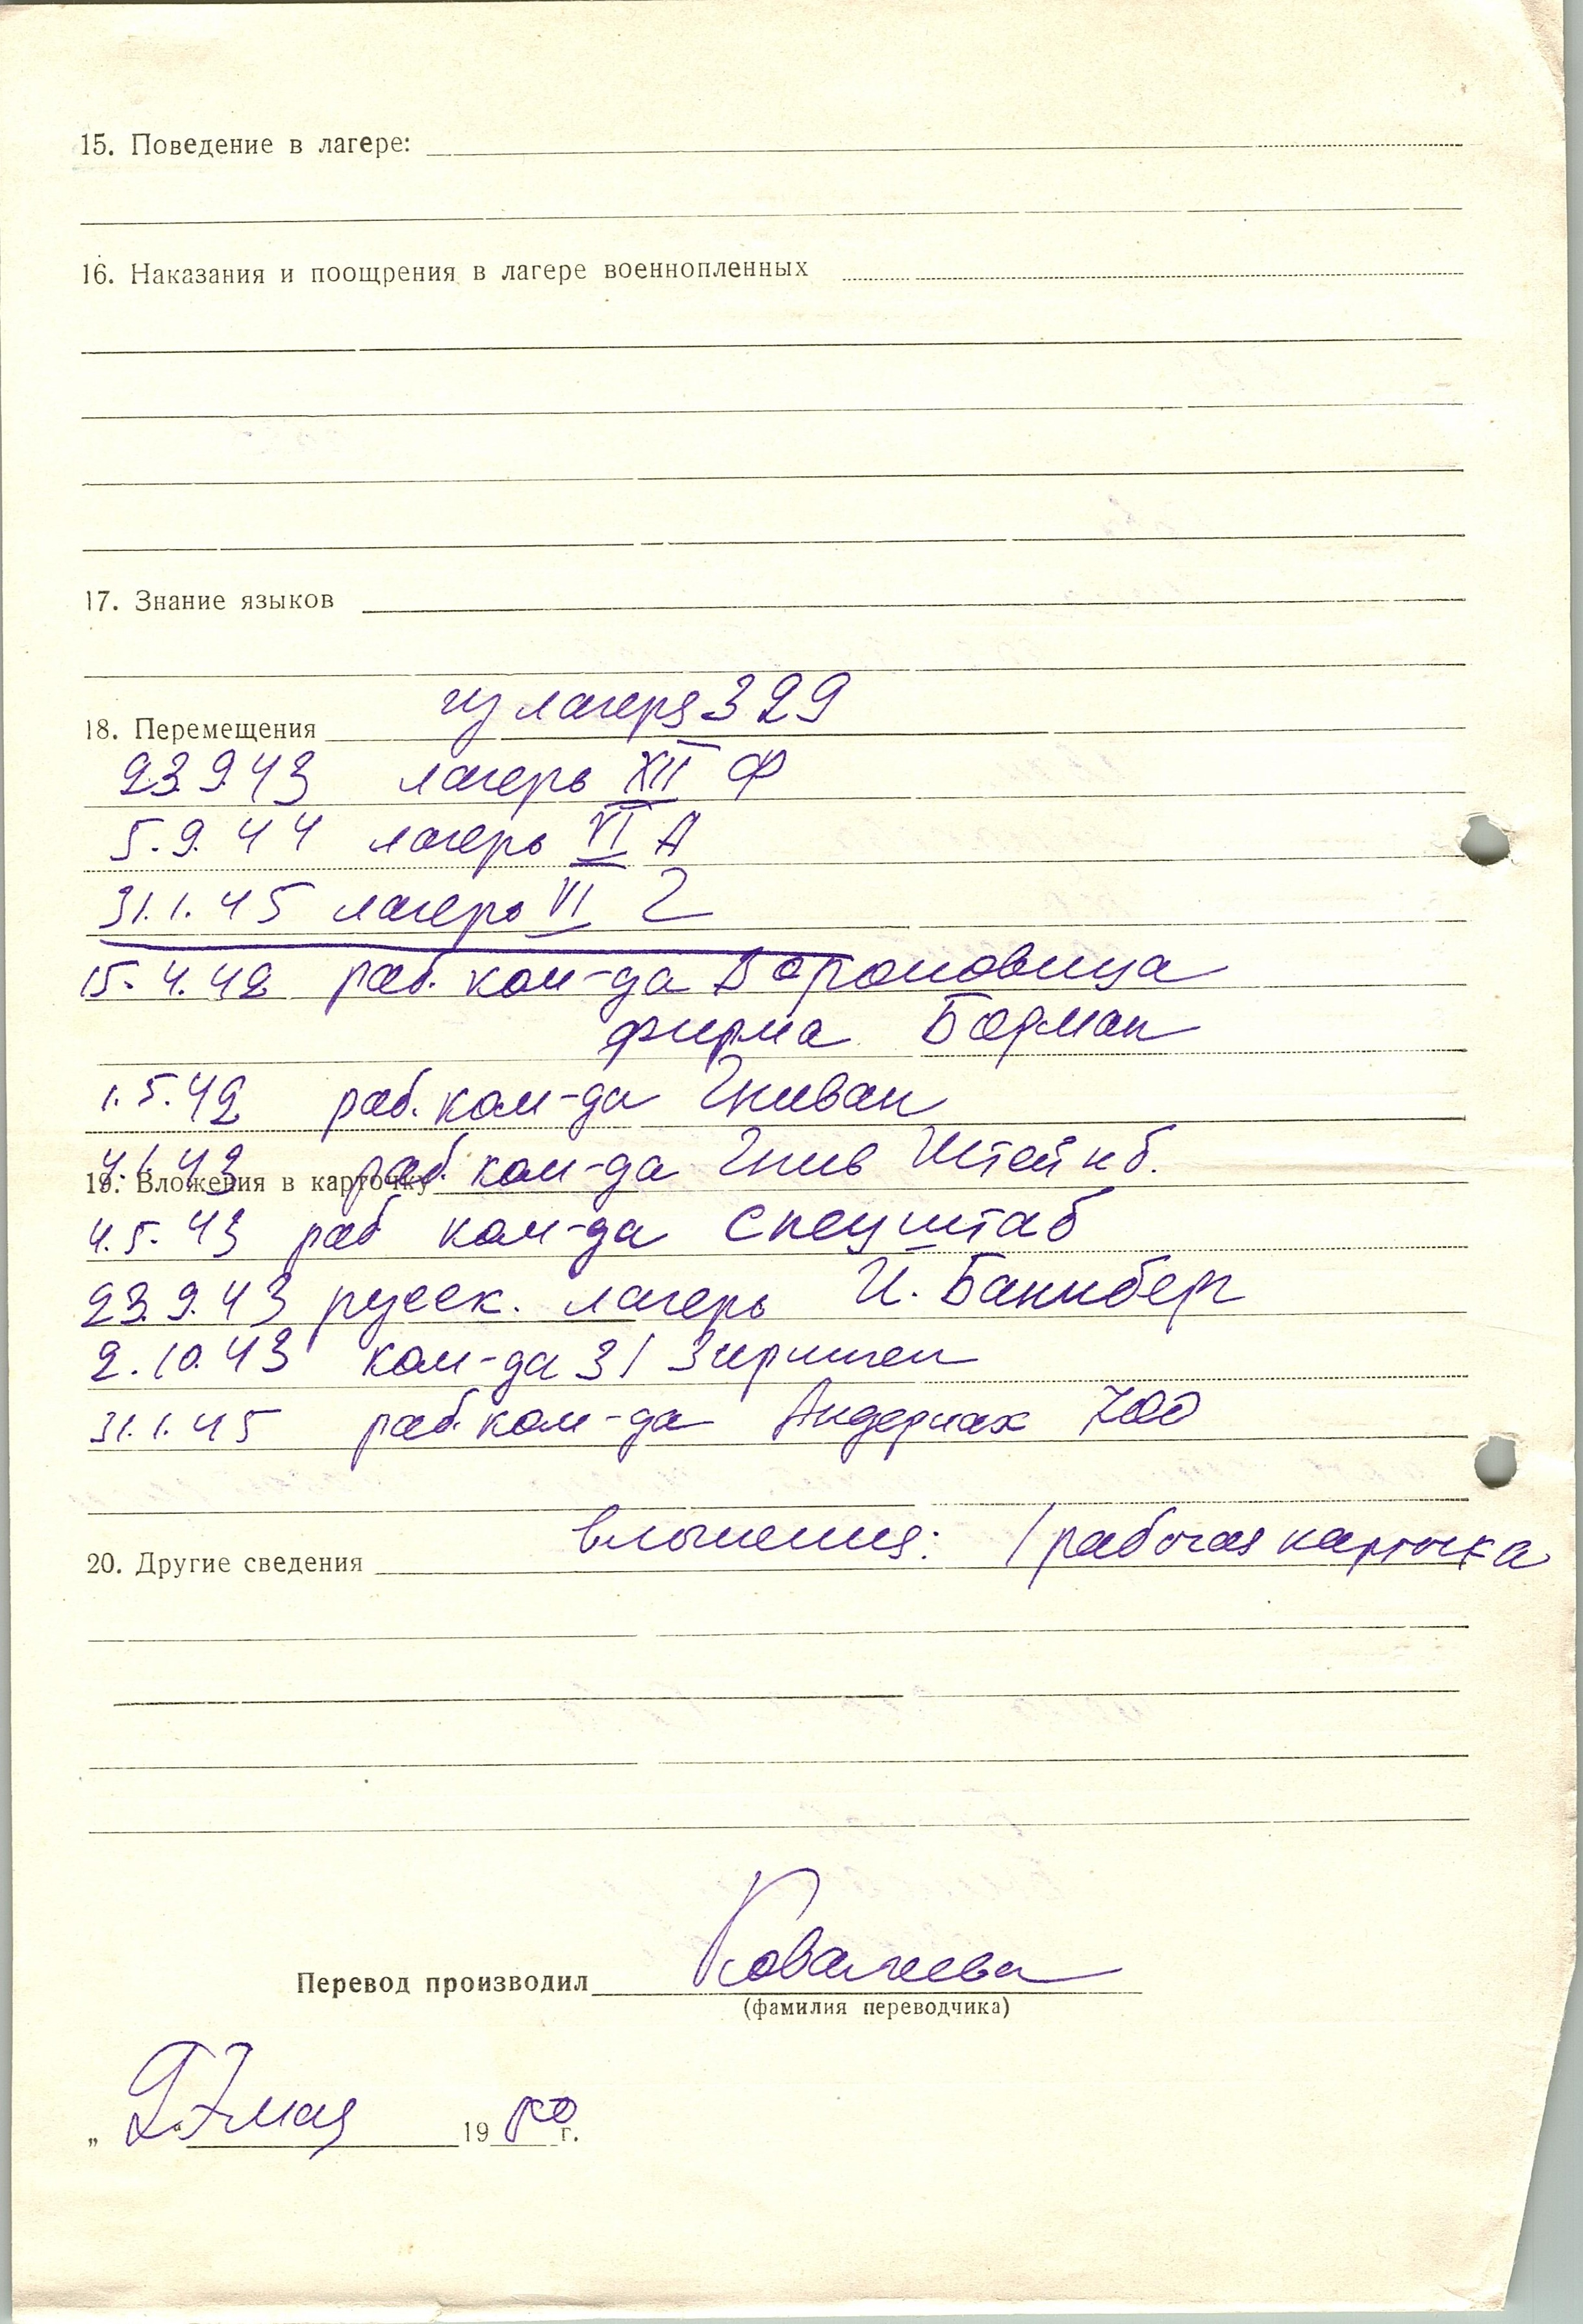 15. Поведение в лагере:
16. Наказания и поощрения в лагере военнопленных
17. Знание языков
18. Перемещения из лагеря 329
23.9.43 лагерь XII Ф
5.9.44 лагерь VI А
31.1.45 лагерь VI Г
15.4.42 раб. ком-да Вороновица
фирма Бодман
1.5.42 раб. ком-да Гниван
4.1.43 раб. ком-да Гнив Штейнб.
19. Вложения в карточку
4.5.43 раб ком-да Спецштаб
23.9.43 русск. лагерь И. Баннберг
2.10.43 ком-да 31
31.1.45 раб. ком-да Андернах 700
вложения: 1 рабочая карточка
20. Другие сведения
Перевод производил Ковалева
(фамилия переводчика)
„ 27 мая 1980 г.